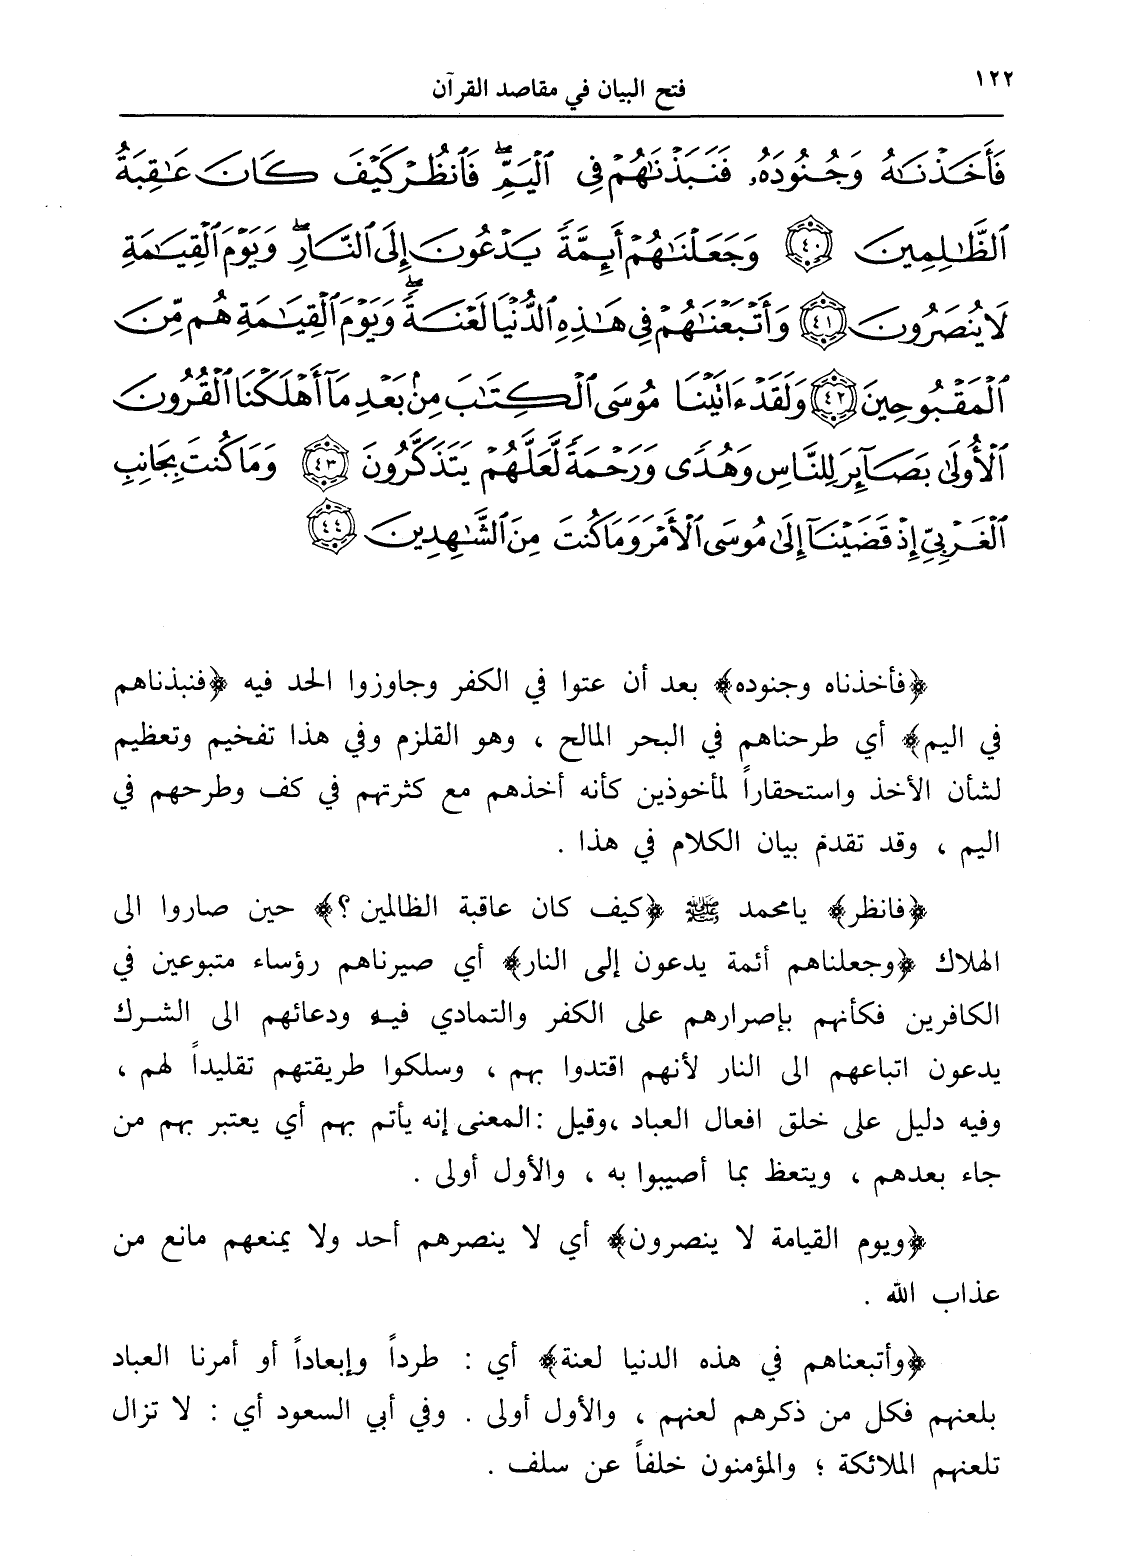 ١٢٢
فتح البيان في مقاصد القرآن
فَأَخَذْنَـٰهُ وَجُنُودَهُۥ فَنَبَذْنَـٰهُمْ فِى ٱلْيَمِّ ۖ فَٱنظُرْ كَيْفَ كَانَ عَـٰقِبَةُ
ٱلظَّـٰلِمِينَ ﴿٤٠﴾ وَجَعَلْنَـٰهُمْ أَئِمَّةً يَدْعُونَ إِلَى ٱلنَّارِ ۖ وَيَوْمَ ٱلْقِيَـٰمَةِ
لَا يُنصَرُونَ ﴿٤١﴾ وَأَتْبَعْنَـٰهُمْ فِى هَـٰذِهِ ٱلدُّنْيَا لَعْنَةً ۖ وَيَوْمَ ٱلْقِيَـٰمَةِ هُم مِّنَ
ٱلْمَقْبُوحِينَ ﴿٤٢﴾ وَلَقَدْ ءَاتَيْنَا مُوسَى ٱلْكِتَـٰبَ مِنۢ بَعْدِ مَآ أَهْلَكْنَا ٱلْقُرُونَ
ٱلْأُولَىٰ بَصَآئِرَ لِلنَّاسِ وَهُدًى وَرَحْمَةً لَّعَلَّهُمْ يَتَذَكَّرُونَ ﴿٤٣﴾ وَمَا كُنتَ بِجَانِبِ
ٱلْغَرْبِىِّ إِذْ قَضَيْنَآ إِلَىٰ مُوسَى ٱلْأَمْرَ وَمَا كُنتَ مِنَ ٱلشَّـٰهِدِينَ ﴿٤٤﴾
﴿فأخذناه وجنوده﴾ بعد أن عتوا في الكفر وجاوزوا الحد فيه ﴿فنبذناهم
في اليم﴾ أي طرحناهم في البحر المالح ، وهو القلزم وفي هذا تفخيم وتعظيم
لشأن الأخذ واستحقاراً لمأخوذين كأنه أخذهم مع كثرتهم في كف وطرحهم في
اليم ، وقد تقدم بيان الكلام في هذا .
﴿فانظر﴾ يامحمد ﷺ ﴿كيف كان عاقبة الظالمين ؟﴾ حين صاروا الى
الهلاك ﴿وجعلناهم أئمة يدعون إلى النار﴾ أي صيرناهم رؤساء متبوعين في
الكافرين فكأنهم بإصرارهم على الكفر والتمادي فيه ودعائهم الى الشرك
يدعون اتباعهم الى النار لأنهم اقتدوا بهم ، وسلكوا طريقتهم تقليداً لهم ،
وفيه دليل على خلق افعال العباد ،وقيل :المعنى إنه يأتم بهم أي يعتبر بهم من
جاء بعدهم ، ويتعظ بما أصيبوا به ، والأول أولى .
﴿ويوم القيامة لا ينصرون﴾ أي لا ينصرهم أحد ولا يمنعهم مانع من
عذاب الله .
﴿وأتبعناهم في هذه الدنيا لعنة﴾ أي : طرداً وإبعاداً أو أمرنا العباد
بلعنهم فكل من ذكرهم لعنهم ، والأول أولى . وفي أبي السعود أي : لا تزال
تلعنهم الملائكة ؛ والمؤمنون خلفاً عن سلف .